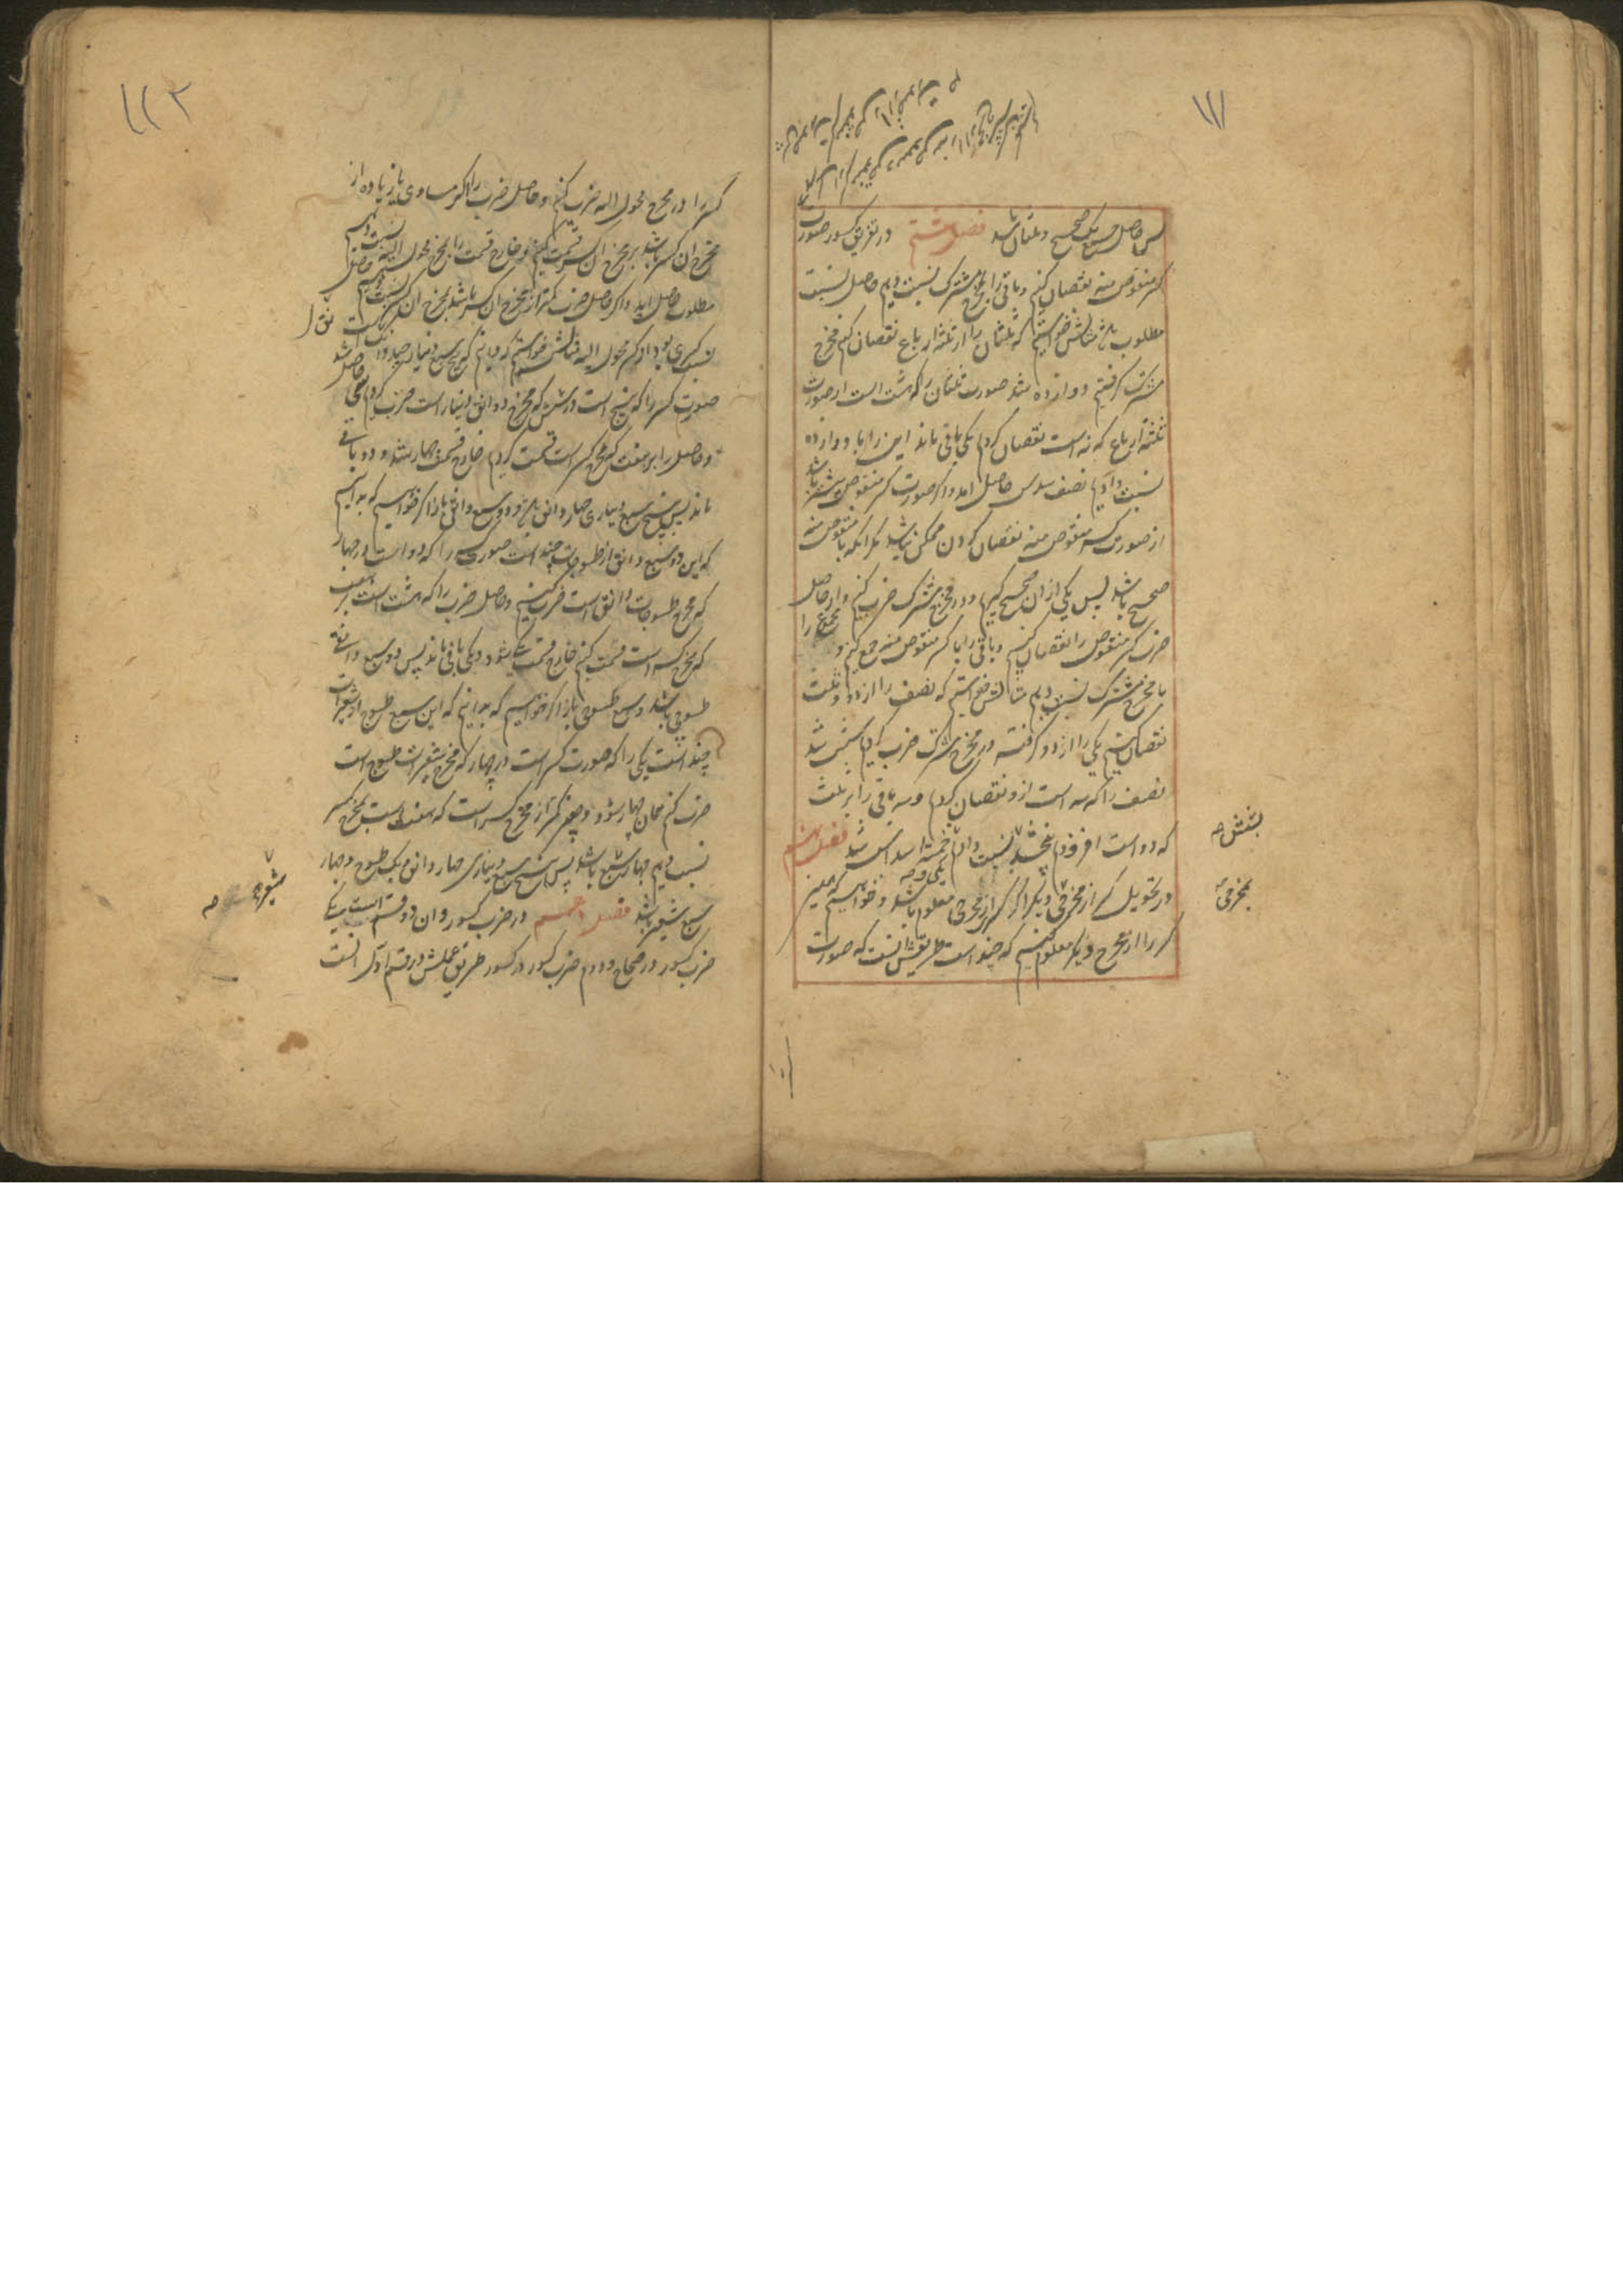 ۱۱۱
پس حاصل جمع یک صحیح و ثلثان باشد فصل ششم در تفریق کسور صورت
کسر منقوص منه نقصان کنیم و باقی را با مخرج مشترک نسبت دهیم حاصل نسبت
مطلوب باشد مثالش خواستیم که ثلثان را از ثلثه ارباع نقصان کنیم مخرج
مشترک گرفتیم دوازده شد صورت ثلثان را که هشت است از صورت
ثلثه ارباع که نه است نقصان کردیم یکی باقی ماند این را با دوازده
نسبت دادیم نصف سدس حاصل آمد و اگر صورت کسر منقوص بیشتر باشد
از صورت کسر منقوص منه نقصان کردن ممکن نباشد مگر آنکه با منقوص منه
صحیح باشد پس یکی از آن صحیح گیریم و در مخرج مشترک ضرب کنیم و از حاصل
ضرب کسر منقوص را نقصان کنیم و باقی را با کسر منقوص منه جمع کنیم و مجموع را
با مخرج مشترک نسبت دهیم مثالش خواستیم که نصف را از دو و ثلث
نقصان کنیم یکی را از دو گرفته در مخرج مشترک ضرب کردیم شش شد
نصف را که سه است از و نقصان کردیم و سه باقی را بر ثلث
که دو است افزودیم پنج شد نسبت دادیم خمسة اسداس شد فصل
در تحویل کسر از مخرجی دیگر اگر کسر از مخرجی معلوم باشد و خواهیم که همین
کسر را از مخرج دیگر معلوم کنیم که چند است طریقش آنست که صورت
بشش صح
بمخرجی
۱۱۲
کسر را در مخرج محول الیه ضرب کنیم و حاصل ضرب را اگر مساوی یا زیاده از
مخرج آن کسر باشد بر مخرج آن کسر قسمت کنیم و خارج قسمت را بمخرج محول الیه نسبت دهیم
مطلوب حاصل آید و اگر حاصل ضرب کمتر از مخرج آن کسر باشد بمخرج آن کسر نسبت دهیم
کسری بود از کسر محول الیه مثالش خواستیم که بدانیم که پنج سبع دینار چند دانق است
صورت کسر را که پنج است در شش که مخرج دوانق دینار است ضرب کردیم سی حاصل شد
و حاصل را بر هفت که مخرج کسر است قسمت کردیم خارج قسمت چهار شد و دو باقی
ماند پس پنج سبع دیناری چهار دانق و دو سبع دانق باشد باز اگر خواهیم که بدانیم
که این دو سبع دانق از طسوجات چند است صورت کسر را که دو است در چهار
که مخرج طسوجات دانق است ضرب کنیم و حاصل ضرب را که هشت است بر هفت
که مخرج کسر است قسمت کنیم خارج قسمت یک شود و یکی باقی ماند پس دو سبع دانق
طسوجی باشد و سبع طسوجی باز اگر خواهیم که بدانیم که این سبع طسوج از شعیرات
چند است یکی را که صورت کسر است در چهار که مخرج شعیرات طسوج است
ضرب کنیم همان چهار شود و چون کمتر از مخرج کسر است که هفت است بمخرج کسر
نسبت دهیم چهار سبع باشد پس پنج سبع دیناری چهار دانق و یک طسوج و چهار
سبع شعیر باشد فصل در ضرب کسور و آن دو قسم است یکی
ضرب کسور در صحاح و دوم ضرب کسور در کسور طریق عملش در قسم اول آنست